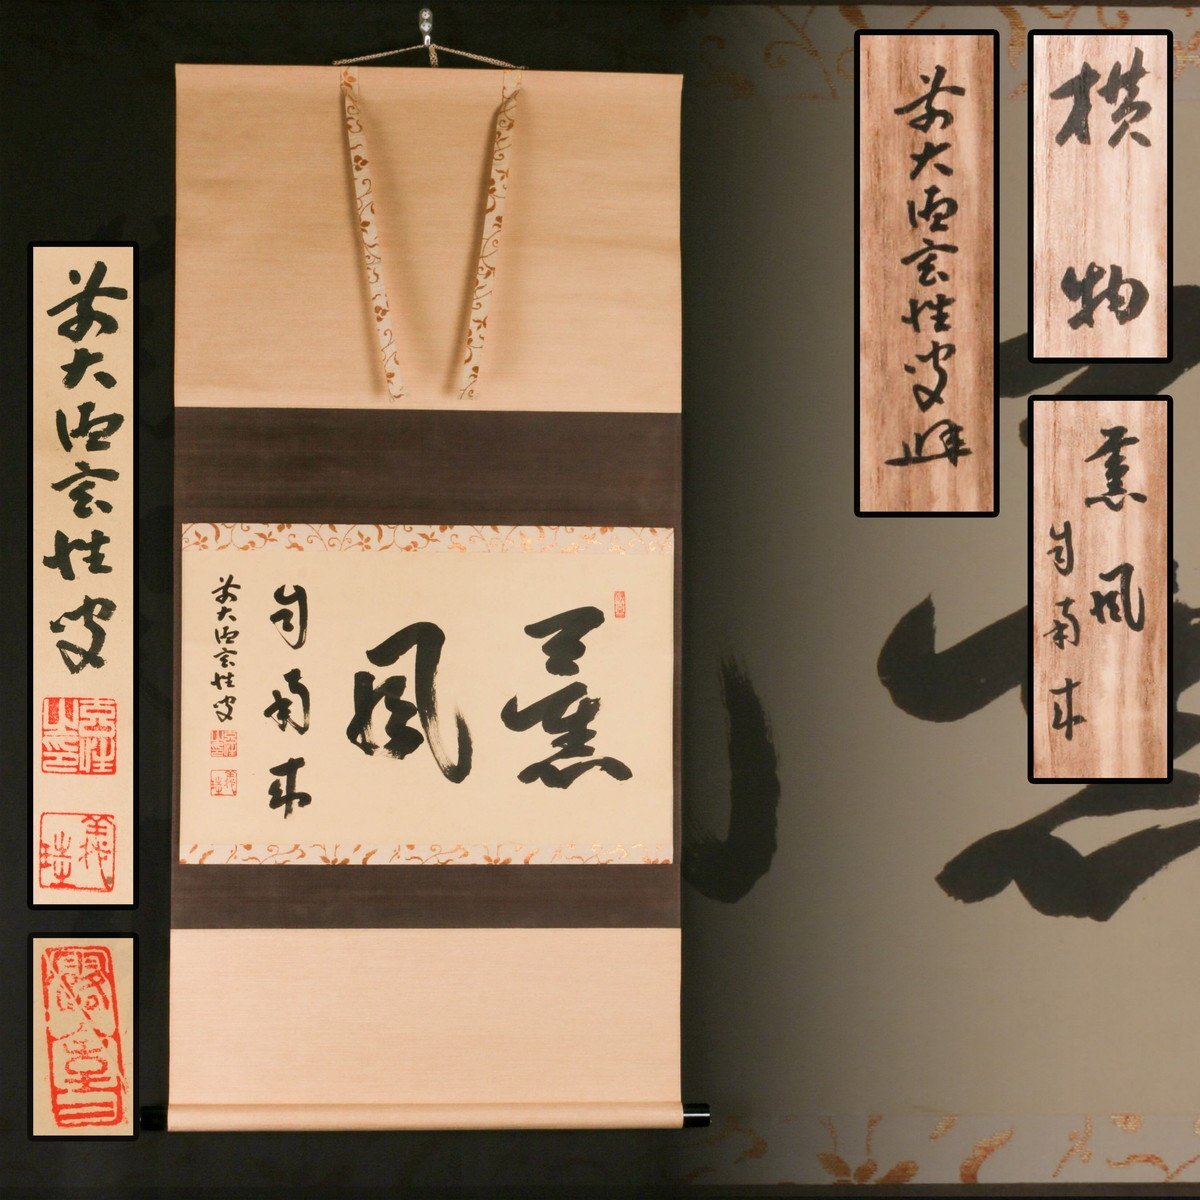 薫風
自南来
前大徳玄性叟
前大徳玄性叟
横物
薫風
自南来
前大徳玄性叟